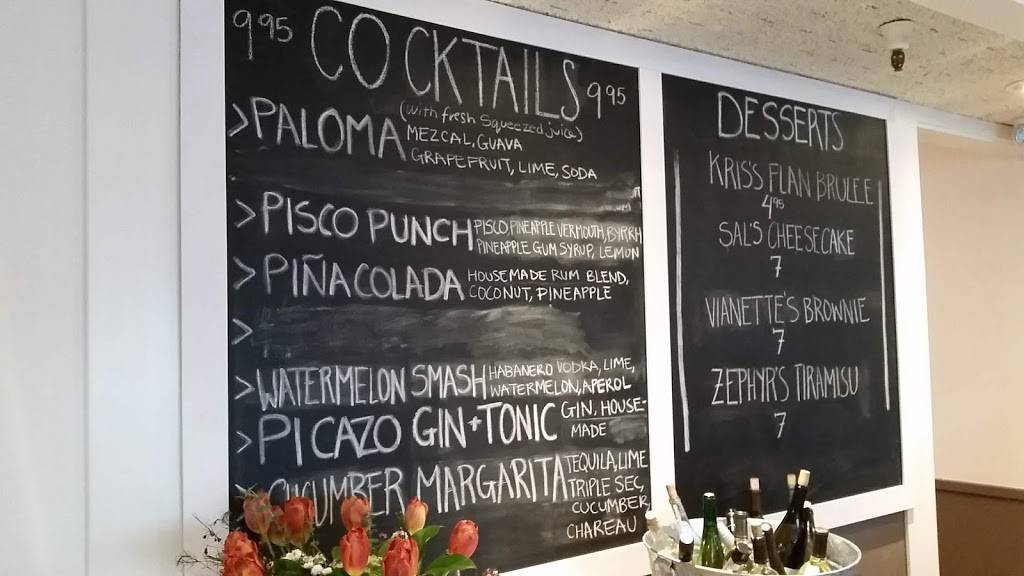 9.95 COCKTAILS 9.95
(with fresh squeezed juice)
>PALOMA MEZCAL, GUAVA
GRAPEFRUIT, LIME, SODA
>PISCO PUNCH PISCO PINEAPPLE VERMOUTH, BYRRH
PINEAPPLE GUM SYRUP, LEMON
>PIÑA COLADA HOUSEMADE RUM BLEND,
COCONUT, PINEAPPLE
>
>WATERMELON SMASH HABANERO VODKA, LIME,
WATERMELON, APEROL
>PICAZO GIN + TONIC GIN, HOUSE-
MADE
CUCUMBER MARGARITA TEQUILA, LIME
TRIPLE SEC,
CUCUMBER
CHAREAU
DESSERTS
KRIS'S FLAN BRULEE
4.95
SAL'S CHEESECAKE
7
VIANETTE'S BROWNIE
7
ZEPHYR'S TIRAMISU
7